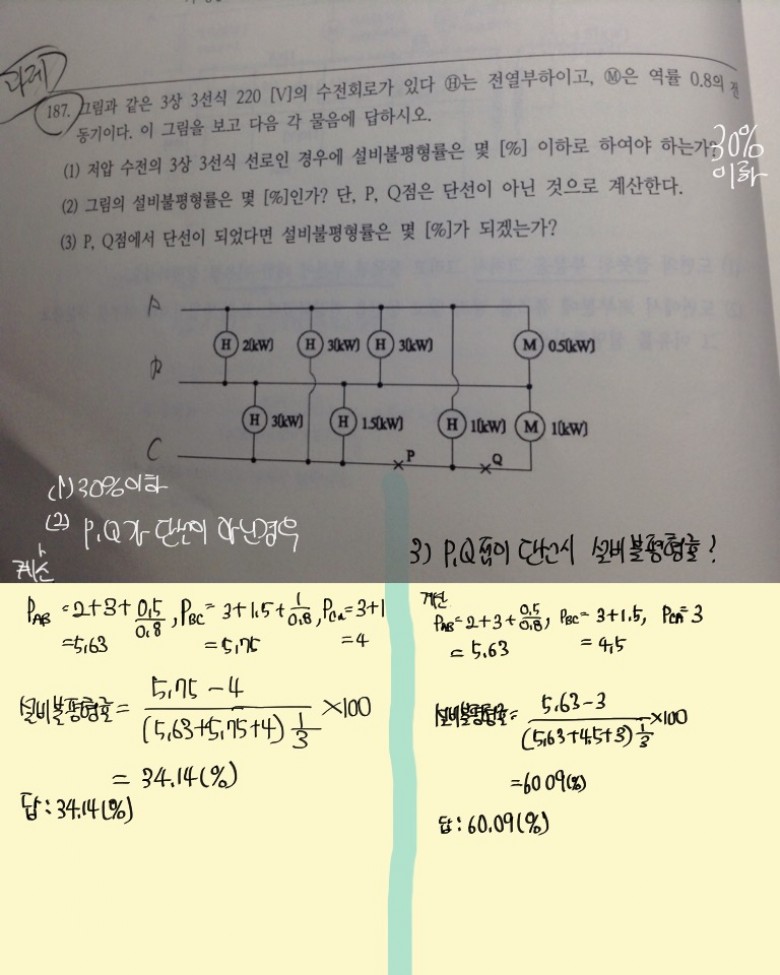 과제
187. 그림과 같은 3상 3선식 220 [V]의 수전회로가 있다 Ⓗ는 전열부하이고, Ⓜ은 역률 0.8의 전
동기이다. 이 그림을 보고 다음 각 물음에 답하시오.
(1) 저압 수전의 3상 3선식 선로인 경우에 설비불평형률은 몇 [%] 이하로 하여야 하는가?
30%
이하
(2) 그림의 설비불평형률은 몇 [%]인가? 단, P, Q점은 단선이 아닌 것으로 계산한다.
(3) P, Q점에서 단선이 되었다면 설비불평형률은 몇 [%]가 되겠는가?
A
H 2[kW] H 3[kW] H 3[kW] M 0.5[kW]
B
H 3[kW] H 1.5[kW] H 1[kW] M 1[kW]
C
P
Q
(1) 30%이하
(2) P,Q가 단선이 아닌경우
계산
P_AB = 2+3+0.5/0.8, P_BC = 3+1.5+1/0.8, P_CA = 3+1
=5.63 =5.75 =4
설비불평형률 = (5.75-4)/((5.63+5.75+4)1/3) ×100
= 34.14(%)
답: 34.14(%)
3) P,Q점이 단선시 설비불평형률?
계산
P_AB = 2+3+0.5/0.8, P_BC = 3+1.5, P_CA = 3
= 5.63 = 4.5
설비불평형률 = (5.63-3)/((5.63+4.5+3)1/3) ×100
=60.09(%)
답: 60.09(%)